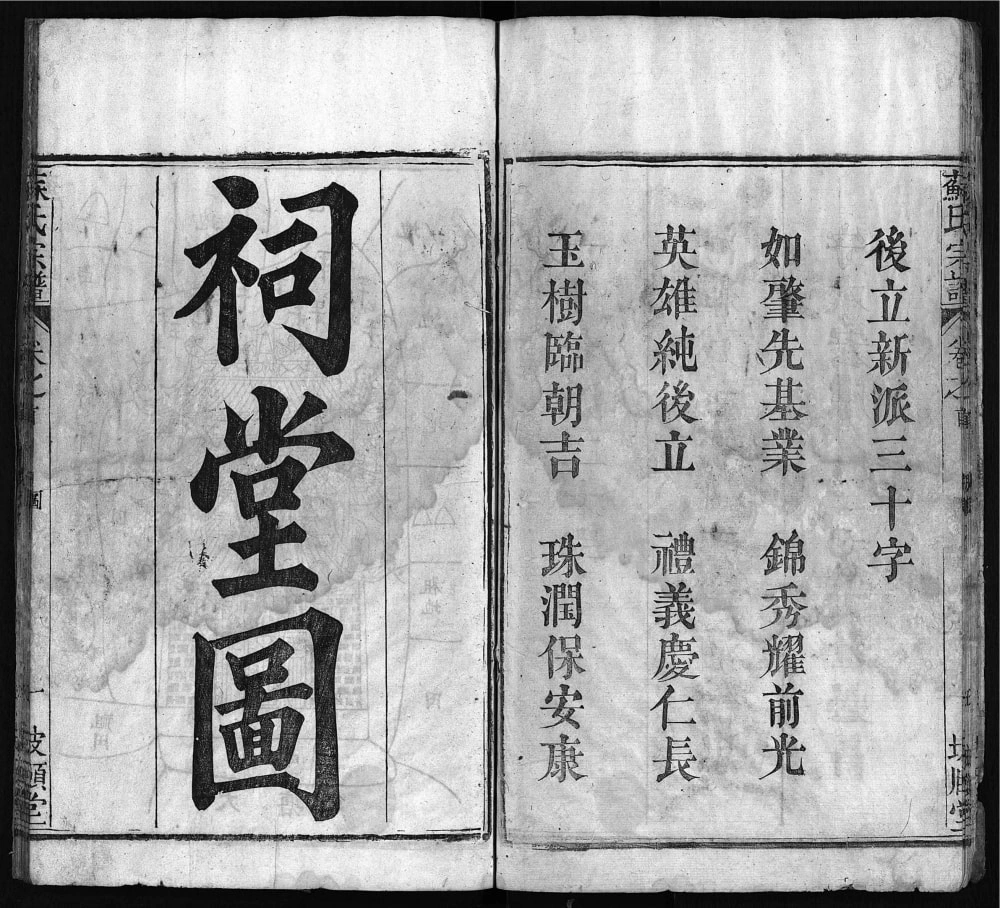 蘇氏宗譜 卷之首
後立新派三十字
如肇先基業 錦秀耀前光
英雄純後立 禮義慶仁長
玉樹臨朝吉 珠潤保安康
祠堂圖
蘇氏宗譜 卷之首 圖 一